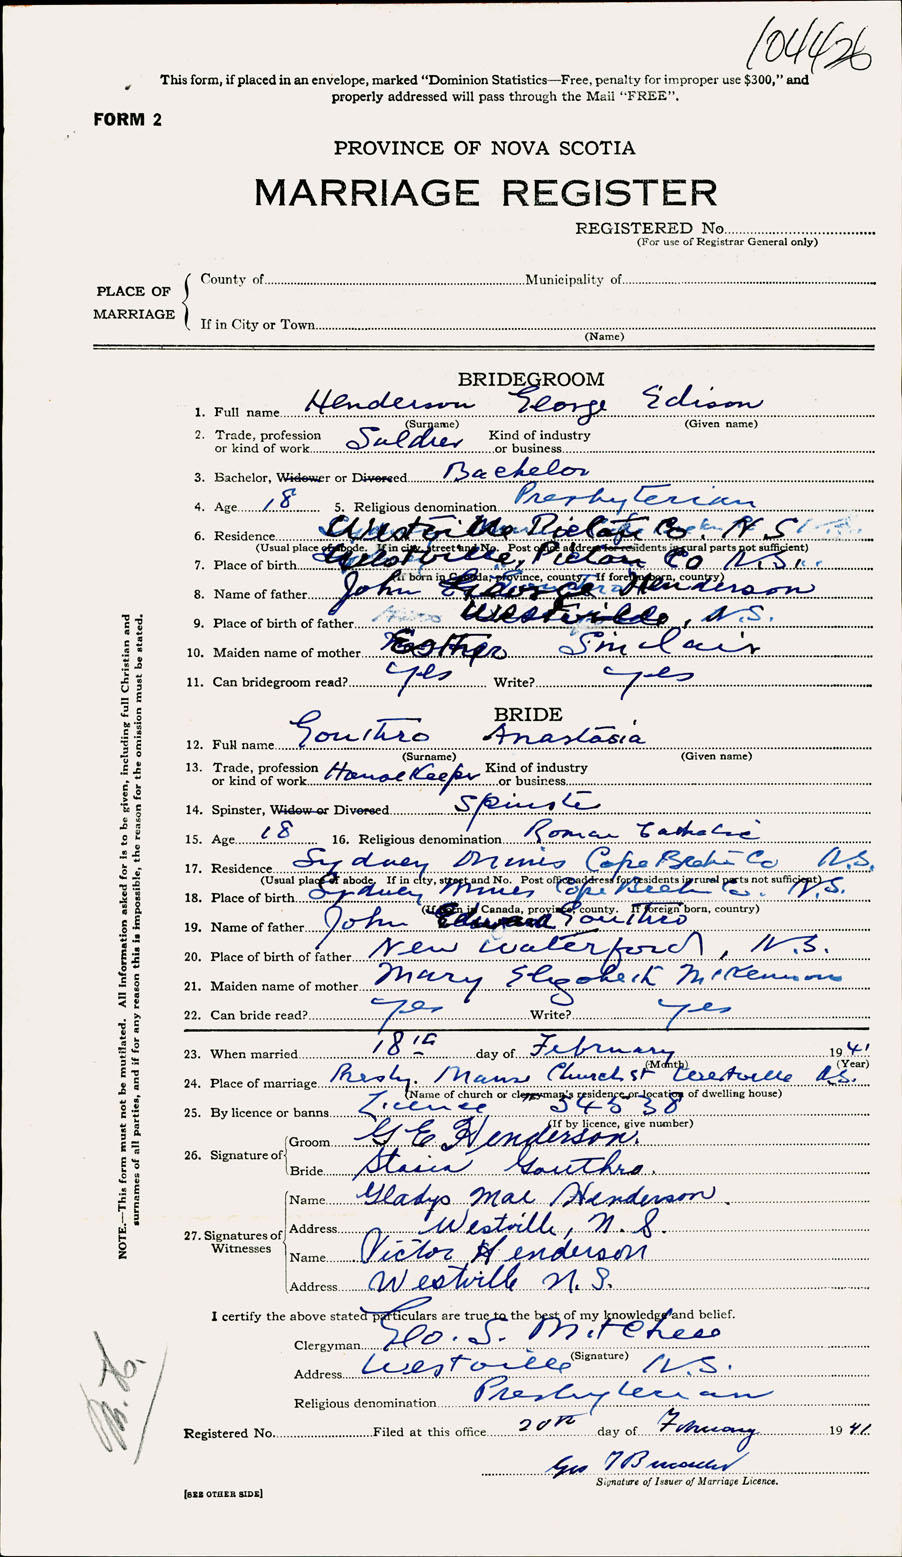 104426
This form, if placed in an envelope, marked “Dominion Statistics—Free, penalty for improper use $300,” and
properly addressed will pass through the Mail “FREE”.
FORM 2
PROVINCE OF NOVA SCOTIA
MARRIAGE REGISTER
REGISTERED No.
(For use of Registrar General only)
PLACE OF MARRIAGE
County of Municipality of
If in City or Town
(Name)
BRIDEGROOM
1. Full name Henderson George Edison
(Surname) (Given name)
2. Trade, profession or kind of work Soldier Kind of industry or business
3. Bachelor, Widower or Divorced Bachelor
4. Age 18 5. Religious denomination Presbyterian
6. Residence Westville Pictou Co. N.S.
(Usual place of abode. If in city, street and No. Post office address for residents in rural parts not sufficient)
7. Place of birth Westville, Pictou Co N.S.
(If born in Canada, province, county. If foreign born, country)
8. Name of father John George Henderson
9. Place of birth of father Westville, N.S.
10. Maiden name of mother Esther Sinclair
11. Can bridegroom read? yes Write? yes
BRIDE
12. Full name Gouthro Anastasia
(Surname) (Given name)
13. Trade, profession or kind of work HouseKeeper Kind of industry or business
14. Spinster, Widow or Divorced Spinster
15. Age 18 16. Religious denomination Roman Catholic
17. Residence Sydney Mines Cape Breton Co N.S.
(Usual place of abode. If in city, street and No. Post office address for residents in rural parts not sufficient)
18. Place of birth Sydney Mines Cape Breton Co. N.S.
(If born in Canada, province, county. If foreign born, country)
19. Name of father John Edward Gouthro
20. Place of birth of father New Waterford, N.S.
21. Maiden name of mother Mary Elizabeth McKinnon
22. Can bride read? yes Write? yes
23. When married 18th day of February 1941
(Month) (Year)
24. Place of marriage Presby. Manse Church St Westville N.S.
(Name of church or clergyman's residence or location of dwelling house)
25. By licence or banns Licence 34538
(If by licence, give number)
26. Signature of Groom G E Henderson.
Bride Stasia Gouthro.
27. Signatures of Witnesses
Name Gladys Mae Henderson
Address Westville, N.S.
Name Victor Henderson
Address Westville N.S.
I certify the above stated particulars are true to the best of my knowledge and belief.
Clergyman Geo. S. Mitchell
(Signature)
Address Westville N.S.
Religious denomination Presbyterian
Registered No. Filed at this office 20th day of February 1941.
Geo
Signature of Issuer of Marriage Licence.
[SEE OTHER SIDE]
NOTE.—This form must not be mutilated. All Information asked for is to be given, including full Christian and
surnames of all parties, and if for any reason this is impossible, the reason for the omission must be stated.